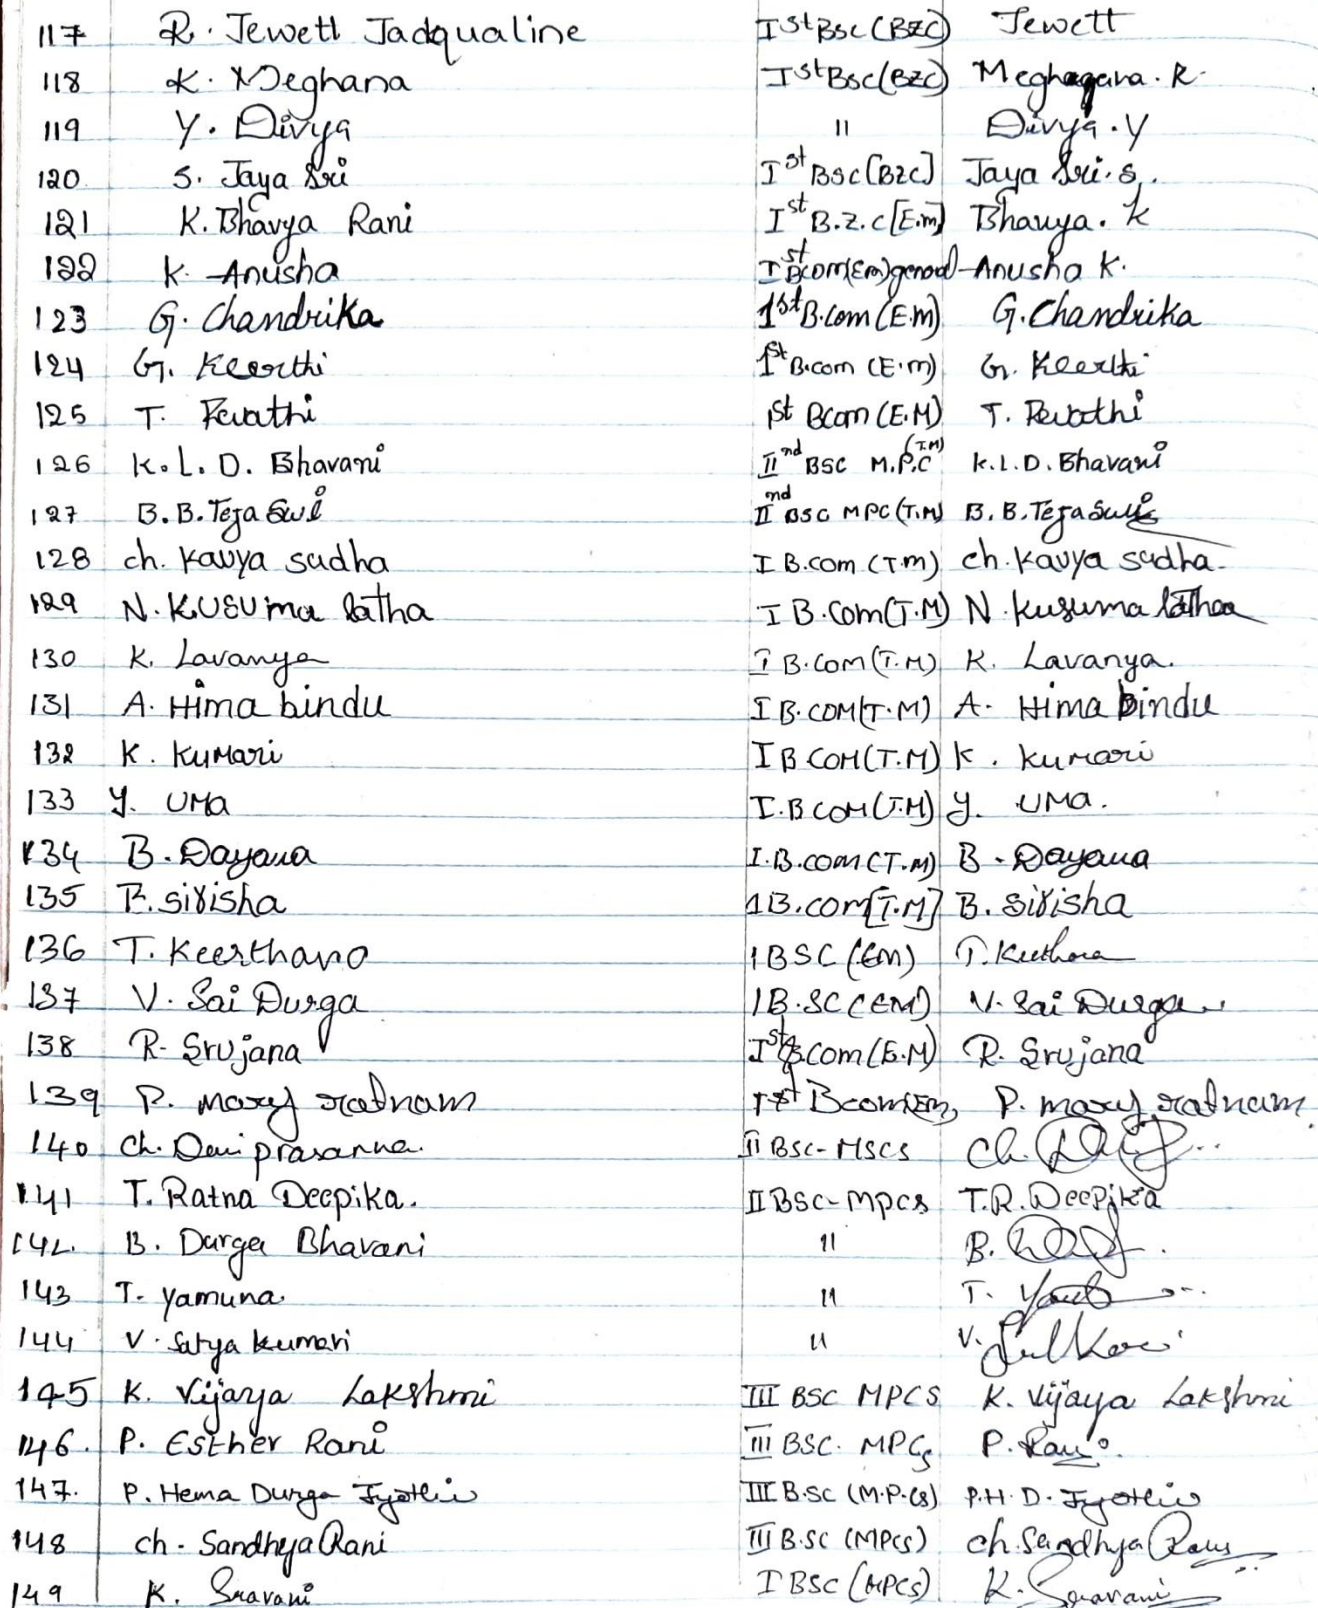 117 R. Jewett Jadqualine Ist Bsc (BZC) Jewett
118 K. Meghana Ist Bsc (BZC) R.
119 Y. Divya 11 Divya.Y
120. S. Jaya Sri Ist BSC [BZC] Jaya Sri.S.
121 K. Bhavya Rani Ist B.Z.C [E.m] Bhavya. K
122 K. Anusha Ist Bcom(Em) Anusha K.
123 G. Chandrika 1st B.com (E.m) G. Chandrika
124 G. Keerthi 1st B.com (E.m) G. Keerthi
125 T. Revathi 1st Bcom (E.M) T. Revathi
126 K.L.D. Bhavani IInd BSC M.P.C (T.M) K.L.D. Bhavani
127 B.B. Teja Swi IInd BSC MPC (T.M) B.B. Teja Swi
128 ch. Kavya sudha I B.com (T.m) ch. Kavya sudha
129 N. KUSUma latha I B.Com (T.M) N. Kusuma latha
130 K. Lavanya I B.Com (T.M) K. Lavanya.
131 A. Hima bindu I B.COM (T.M) A. Hima bindu
132 K. KuMari I B COM (T.M) K. kumari
133 Y. UMa I.B COM (T.M) Y. UMa.
134 B. Dayana I.B.com (T.M) B. Dayana
135 B. sirisha 1 B.com [T.M] B. sirisha
136 T. Keerthana 1 BSC (EM) T.
137 V. Sai Durga 1 B.SC (EM) V. Sai Durga
138 R. Srujana Ist B.Com (E.M) R. Srujana
139 P. mary ratnam 1st Bcom (Em) P. mary ratnam
140 Ch. Devi prasanna. II BSC - MSCS Ch.
141 T. Ratna Deepika. II BSC - MPCS T.R. Deepika
142. B. Durga Bhavani 11 B.
143 T. yamuna. 11 T.
144 V. Satya kumari 11 V.
145 K. Vijaya Lakshmi III BSC MPCS K. Vijaya Lakshmi
146. P. Esther Rani III BSC. MPCs P. Rani
147. P. Hema Durga Jyothi III B.SC (M.P.Cs) P.H.D. Jyothi
148 ch. Sandhya Rani III B.SC (MPCs) ch. Sandhya Rani
149 K. Sravani I BSC (MPCS) K. Sravani